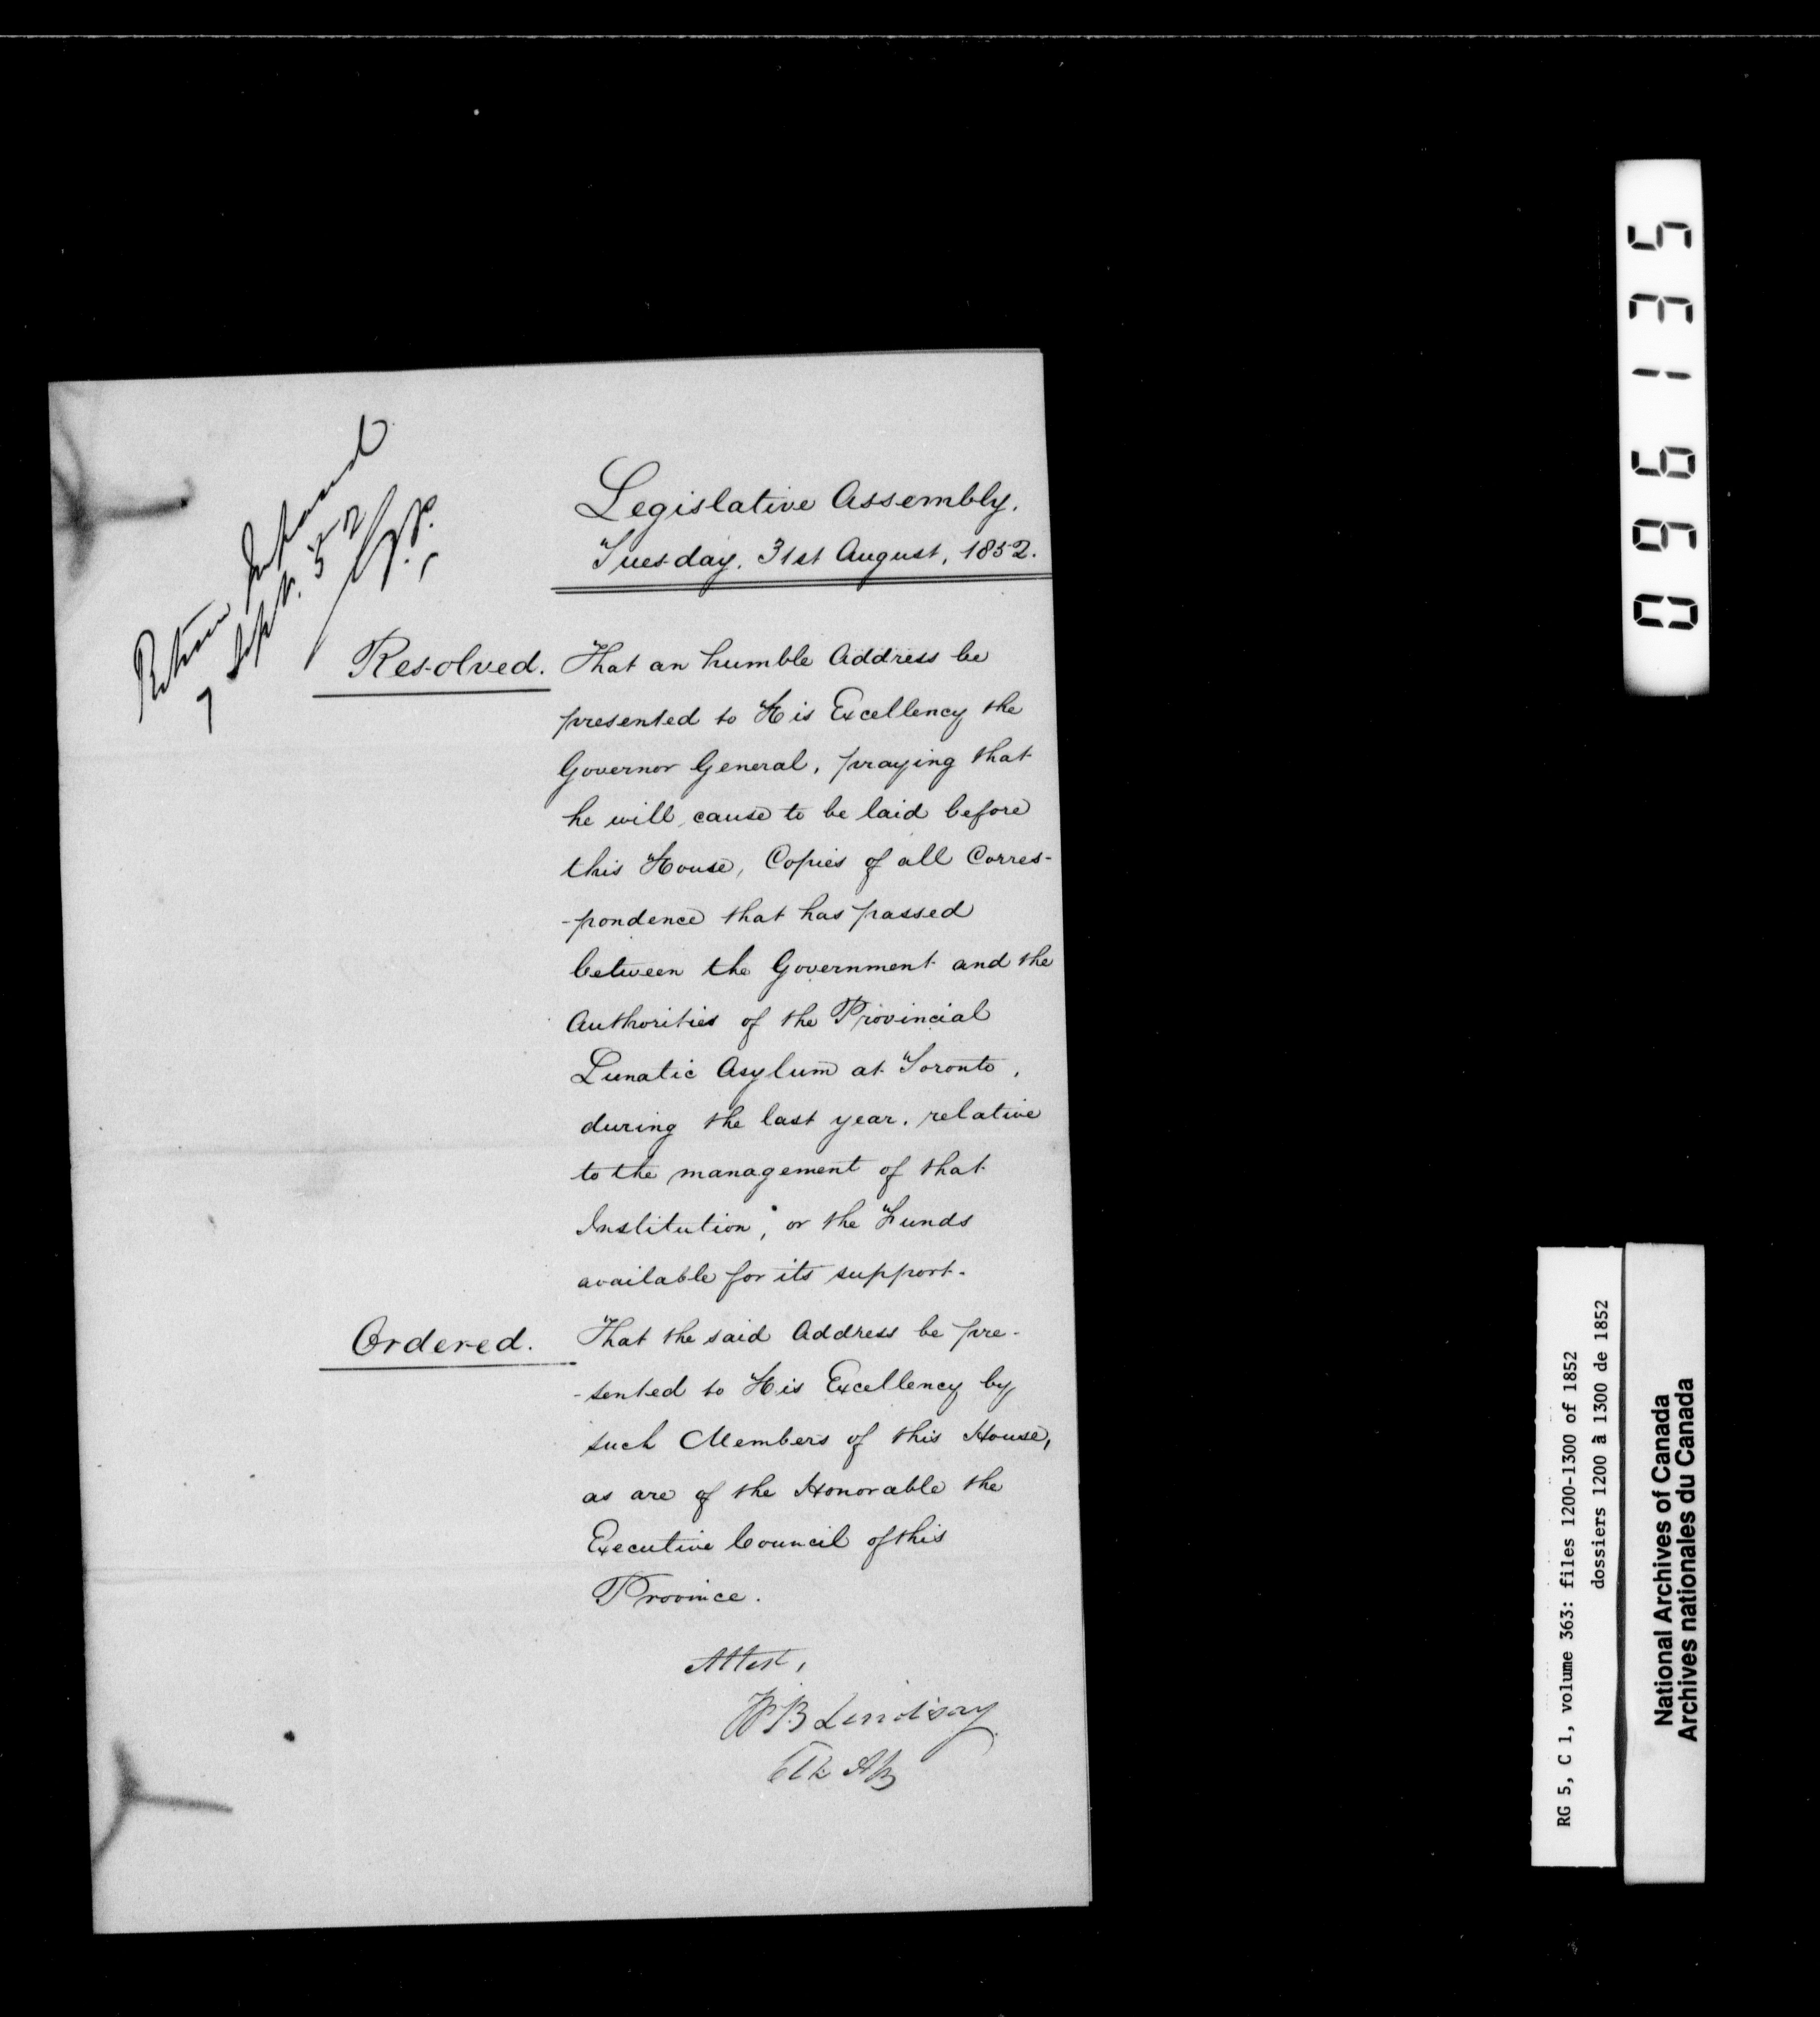 Return
7 Sept. 52
Legislative Assembly.
Tuesday, 31st August, 1852.
Resolved. That an humble Address be
presented to His Excellency the
Governor General, praying that
he will cause to be laid before
this House, Copies of all Corres-
-pondence that has passed
between the Government and the
Authorities of the Provincial
Lunatic Asylum at Toronto,
during the last year, relative
to the management of that
Institution, or the Funds
available for its support.
Ordered. That the said Address be pre-
-sented to His Excellency by
such Members of this House,
as are of the Honorable the
Executive Council of this
Province.
Attest,
WB Lindsay
Clk
096135
RG 5, C 1, volume 363: files 1200-1300 of 1852
dossiers 1200 à 1300 de 1852
National Archives of Canada
Archives nationales du Canada